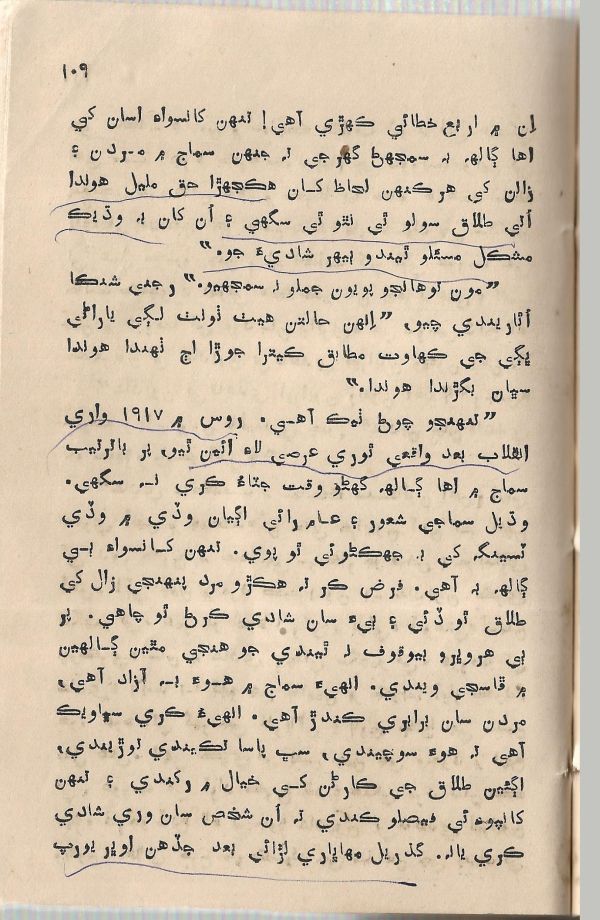 ۱۰۹
اِن ۾ اربع خطائي ڪهڙي آهي! تنهن کانسواءِ اسان کي
اها ڳالهہ بہ سمجهڻ گهرجي تہ جنهن سماج ۾ مردن ۽
زالن کي هر ڪنهن لحاظ کان هڪجهڙا حق مليل هوندا
اُتي طلاق سولو ئي نٿو ٿي سگهي ۽ اُن کان بہ وڌيڪ
مشڪل مسئلو ٿيندو ٻيهر شاديءَ جو.“
”مون توهانجو پويون جملو نہ سمجهيو.“ رجني شنڪا
اُٿاريندي چيو، ”اِنهن حالتن هيٺ ٺونٺ لڳي ياراڻي
ڀڳي جي ڪهاوت مطابق ڪيترا جوڙا اڄ ٺهندا هوندا
سڀان بگڙندا هوندا.“
”تنهنجو چوڻ ٺيڪ آهي. روس ۾ ۱۹۱۷ واري
انقلاب بعد واقعي ٿوري عرصي لاءِ ائين ٿيو، پر باترتيب
سماج ۾ اها ڳالهہ گهڻو وقت جٽاءُ ڪري نہ سگهي.
وڌيل سماجي شعور ۽ عام رائي اڳيان وڏي ۾ وڏي
ٽسينگ کي بہ جهڪڻوئي ٿو پوي. تنهن کانسواءِ ٻي
ڳالهہ بہ آهي. فرض ڪر تہ هڪڙو مرد پنهنجي زال کي
طلاق ٿو ڏئي ۽ ٻيءَ سان شادي ڪرڻ ٿو چاهي. پر
ٻي هروڀرو بيوقوف نہ ٿيندي جو هنجي مٿين ڳالهين
۾ ڦاسجي ويندي. انهيءَ سماج ۾ هوءَ بہ آزاد آهي،
مردن سان برابري ڪندڙ آهي. انهيءَ ڪري سڀاويڪ
آهي تہ هوءَ سوچيندي، سڀ پاسا تڪيندي توڙيندي،
اڳئين طلاق جي ڪارڻن کي خيال ۾ رکندي ۽ تنهن
کانپوءِ ئي فيصلو ڪندي تہ اُن شخص سان وري شادي
ڪري يا نہ. گذريل مهاڀاري لڙائي بعد جڏهن اوڀر يورپ